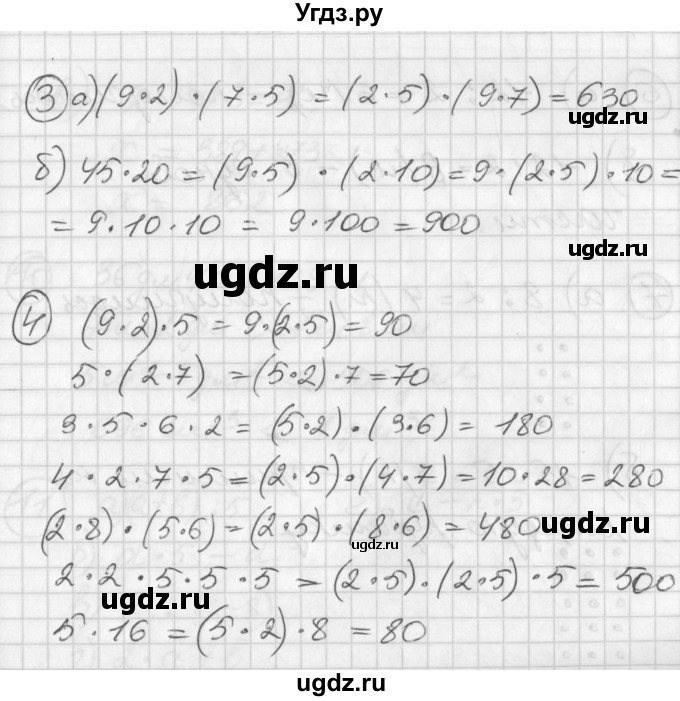 Угдз.ру
3 а) (9·2)·(7·5) = (2·5)·(9·7) = 630
ugdz.ru
б) 45·20 = (9·5)·(2·10) = 9·(2·5)·10 =
= 9·10·10 = 9·100 = 900
ugdz.ru
ugdz.ru
4 (9·2)·5 = 9·(2·5) = 90
5·(2·7) = (5·2)·7 = 70
3·5·6·2 = (5·2)·(3·6) = 180
4·2·7·5 = (2·5)·(4·7) = 10·28 = 280
(2·8)·(5·6) = (2·5)·(8·6) = 480
ugdz.ru
ugdz.ru
2·2·5·5·5 = (2·5)·(2·5)·5 = 500
ugdz.ru
5·16 = (5·2)·8 = 80
ugdz.ru
ugdz.ru